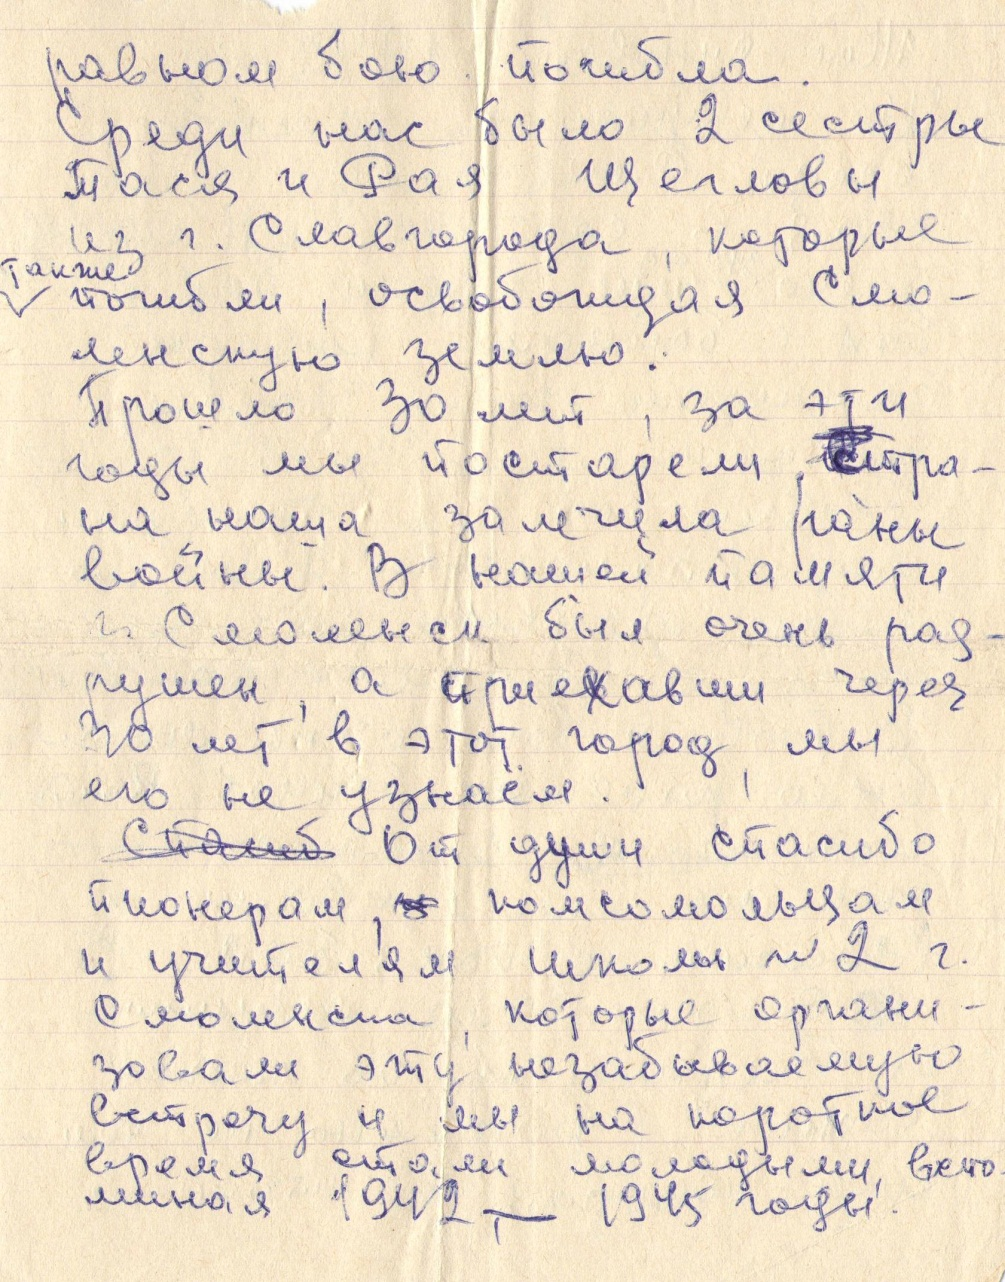 равном бою погибла.
Среди нас было 2 сестры
Тася и Рая Щегловы
из г. Славгорода, которые
также
погибли, освобождая Смо-
ленскую землю.
Прошло 30 лет, за эти
годы мы постарели, стра-
на наша залечила раны
войны. В нашей памяти
г. Смоленск был очень раз-
рушен, а приехавши через
30 лет в этот город, мы
его не узнаём.
Спасиб От души спасибо
пионерам, комсомольцам
и учителям школы № 2 г.
Смоленска, которые органи-
зовали эту незабываемую
встречу и мы на короткое
время стали молодыми, вспо-
миная 1942 — 1945 годы.